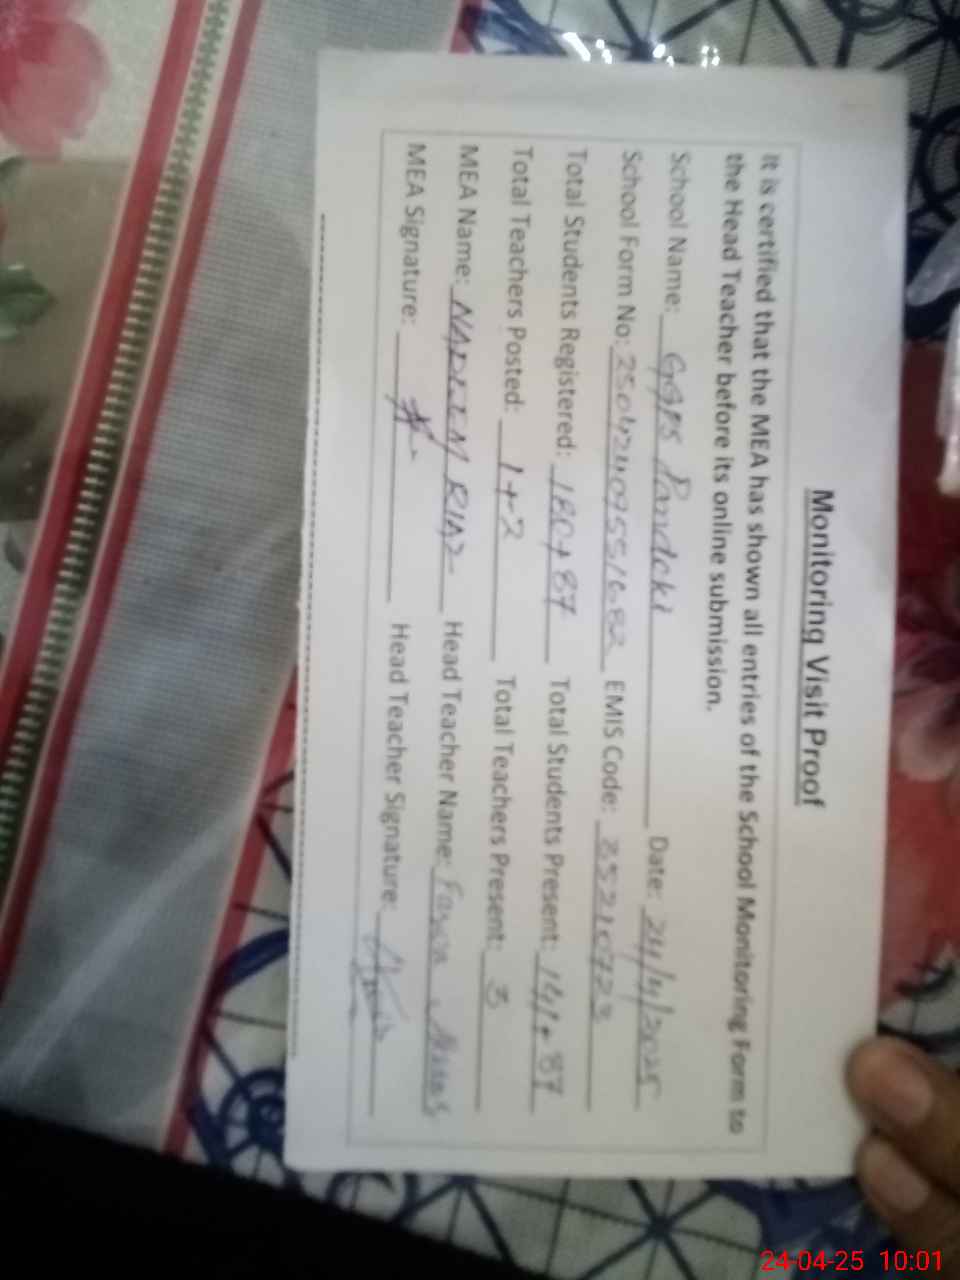 Monitoring Visit Proof
It is certified that the MEA has shown all entries of the School Monitoring Form to
the Head Teacher before its online submission.
School Name: GGPS Pandoki Date: 24/4/2025
School Form No: EMIS Code: 35210723
Total Students Registered: 180+87 Total Students Present: 141+87
Total Teachers Posted: 1+2 Total Teachers Present: 3
MEA Name: NADEEM RIAZ Head Teacher Name:
MEA Signature: Head Teacher Signature:
24-04-25 10:01